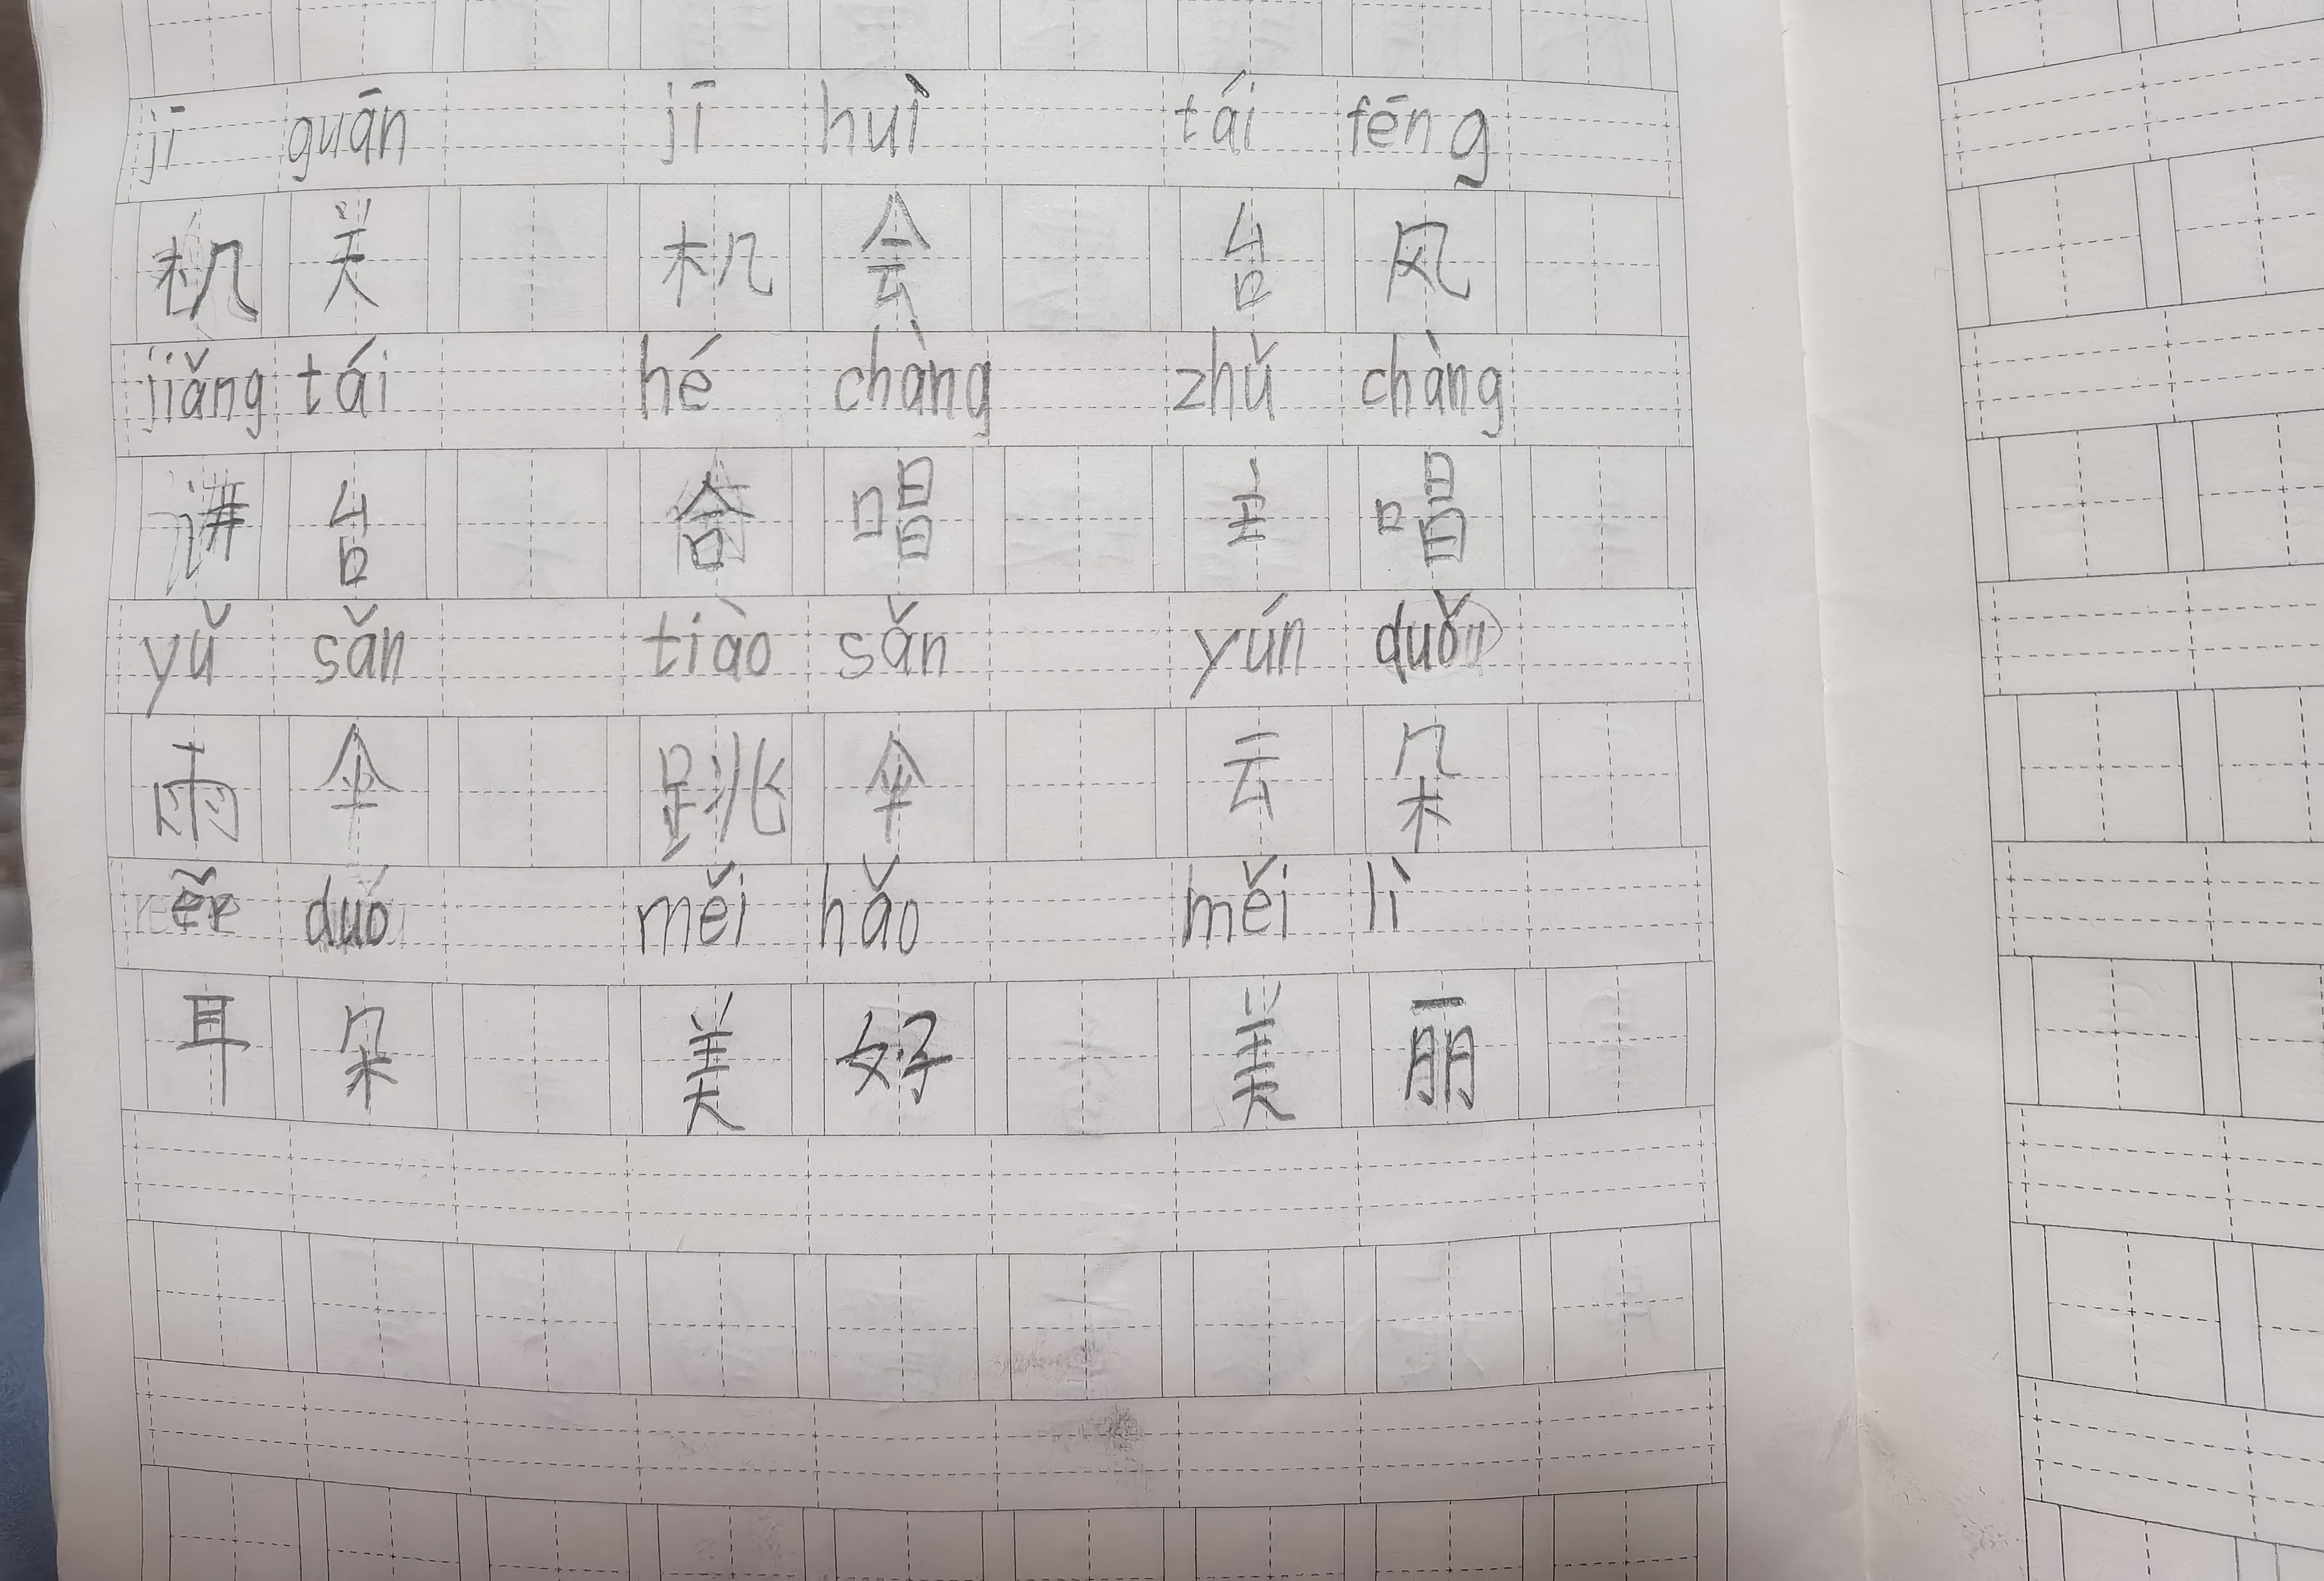 jī guān jī huì tái fēng
机 关 机 会 台 风
jiǎng tái hé chàng zhǔ chàng
讲 台 合 唱 主 唱
yǔ sǎn tiào sǎn yún duǒ
雨 伞 跳 伞 云 朵
ěr duó měi hǎo měi lì
耳 朵 美 好 美 丽